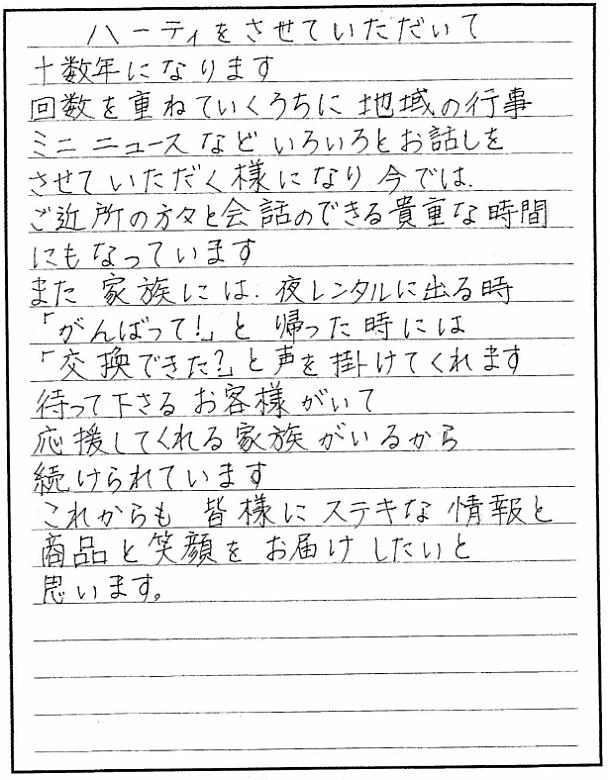 ハーティをさせていただいて
十数年になります
回数を重ねていくうちに 地域の行事
ミニニュースなど いろいろとお話しを
させていただく様になり 今では、
ご近所の方々と会話のできる貴重な時間
にもなっています
また 家族には、夜レンタルに出る時
「がんばって!」と 帰った時には
「交換できた?」と声を掛けてくれます
待って下さる お客様がいて
応援してくれる家族がいるから
続けられています
これからも 皆様に ステキな 情報と
商品と笑顔を お届けしたいと
思います。